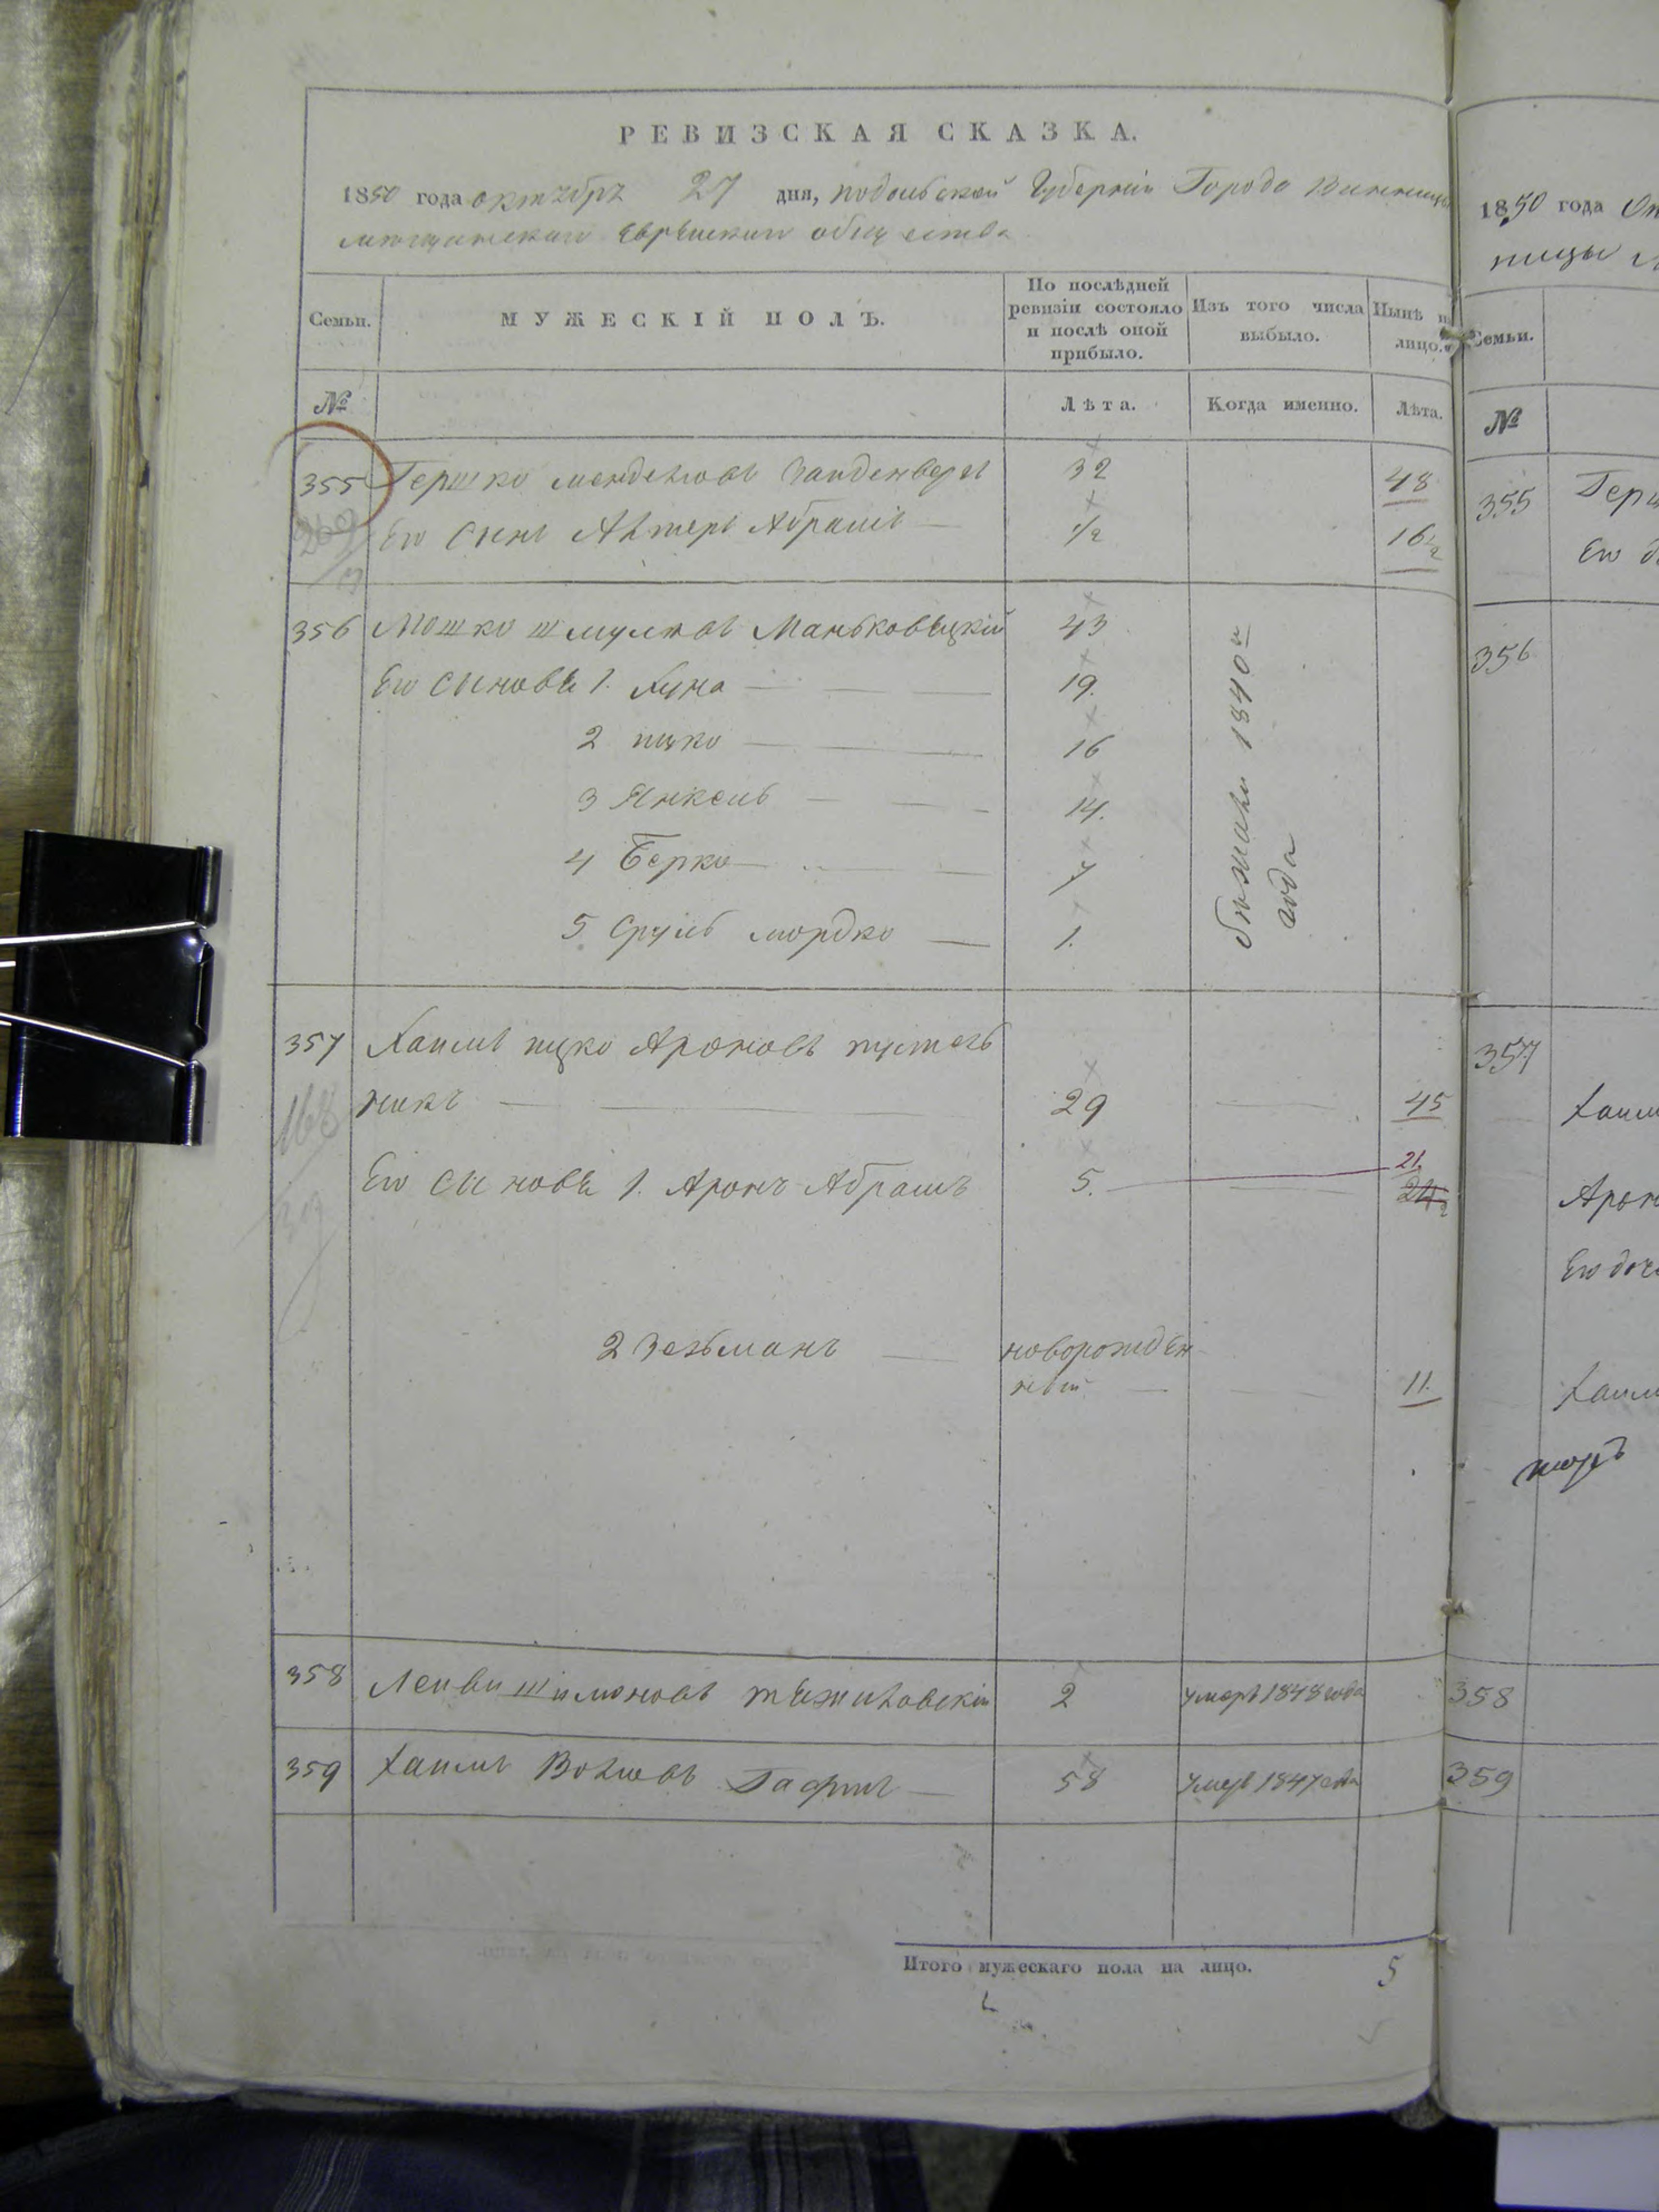 РЕВИЗСКАЯ СКАЗКА.
1850 года октября 27 дня, подольской Губерніи Города Винницы
мещанскаго Еврейскаго общества
Семьи.
МУЖЕСКІЙ ПОЛЪ.
По послѣдней
ревизіи состояло
и послѣ оной
прибыло.
Изъ того числа
выбыло.
Нынѣ н
лицо.
№
Лѣта.
Когда именно.
Лѣта.
355 Гершко Менделювъ Зайденберг 32 48
Его Сынъ Альтеръ Абрамъ 1/2 16 1/2
356 Мошко Шмулювъ Маньковецкій 43
Его Сыновья 1. Хуна 19.
2 ицко 16
3 Янкель 14.
4 Берко 7
5 Сруль мордко 1.
бѣжали 1840го
года
357 Хаимъ ицко Ароновъ
никъ 29 45
Его Сыновья 1. Аронъ Абрамъ 5. 21.
2 Зельманъ новорожден
ный 11.
358 Лейви Шимоновъ 2 умеръ 1848 года
359 Хаимъ Волювъ 58 умеръ 1847 года
Итого мужескаго пола на лицо. 5
1850 года Ок
ницы
Семьи.
№
355 Герш
Его д
356
357
Хаим
Арон
Его доч
Хаим
358
359